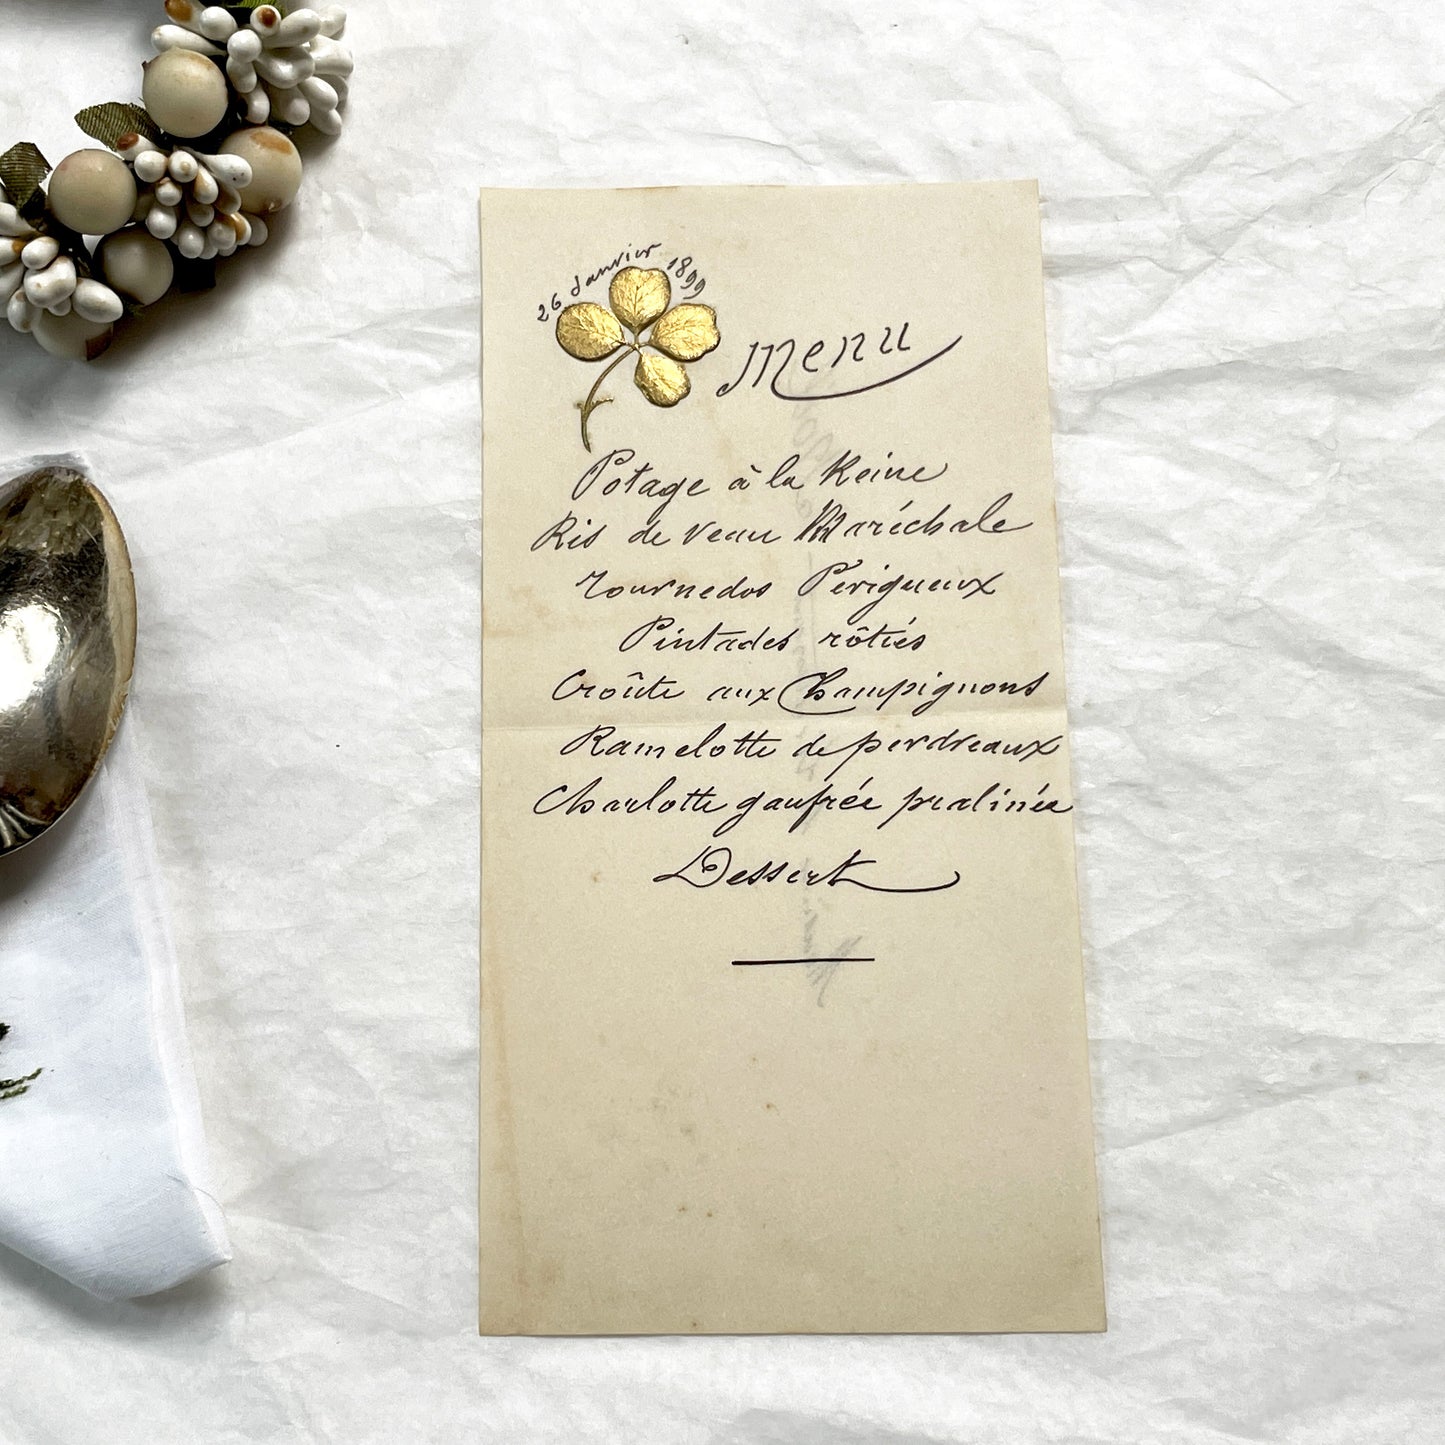 26 Janvier 1899
Menu
Potage à la Reine
Ris de veau Maréchale
Tournedos Périgueux
Pintades rôties
Croûte aux Champignons
Ramelotte de perdreaux
Charlotte gaufrée pralinée
Dessert